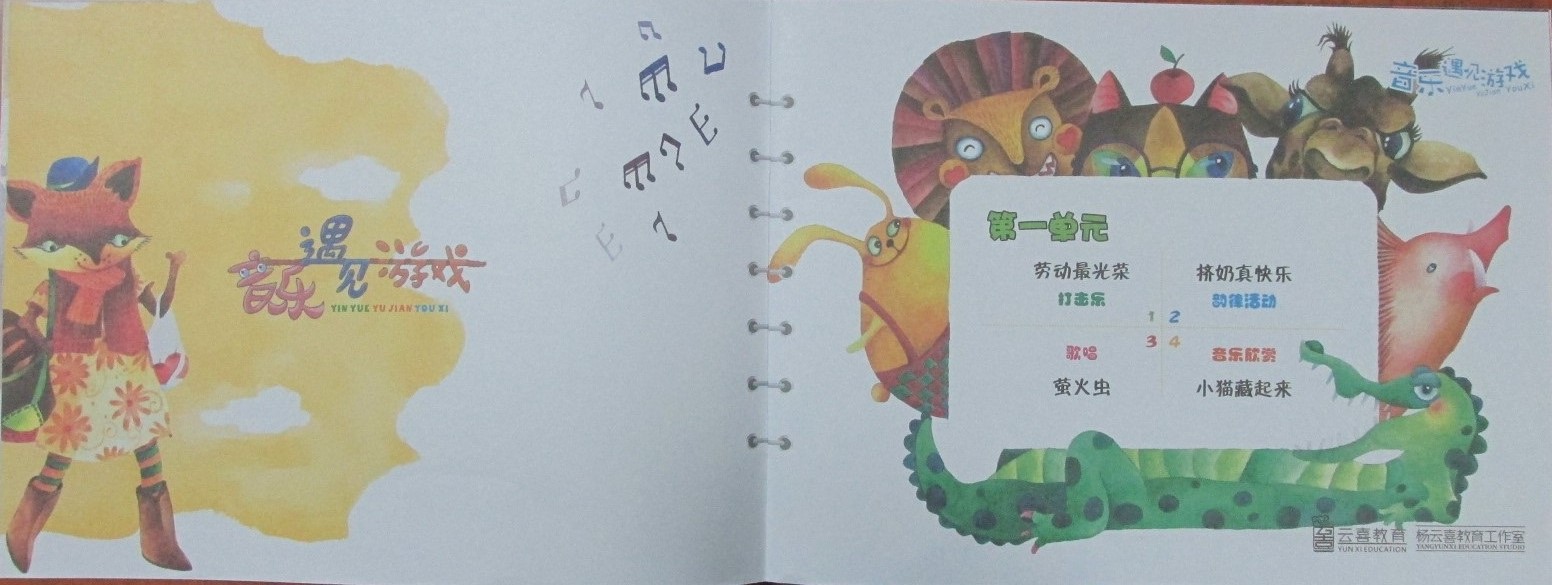 音乐遇见游戏
YIN YUE YU JIAN YOU XI
音乐遇见游戏
YinYue YuJian YouXi
第一单元
劳动最光荣 挤奶真快乐
打击乐 韵律活动
1 2
3 4
歌唱 音乐欣赏
萤火虫 小猫藏起来
云喜教育 杨云喜教育工作室
YUN XI EDUCATION YANGYUNXI EDUCATION STUDIO